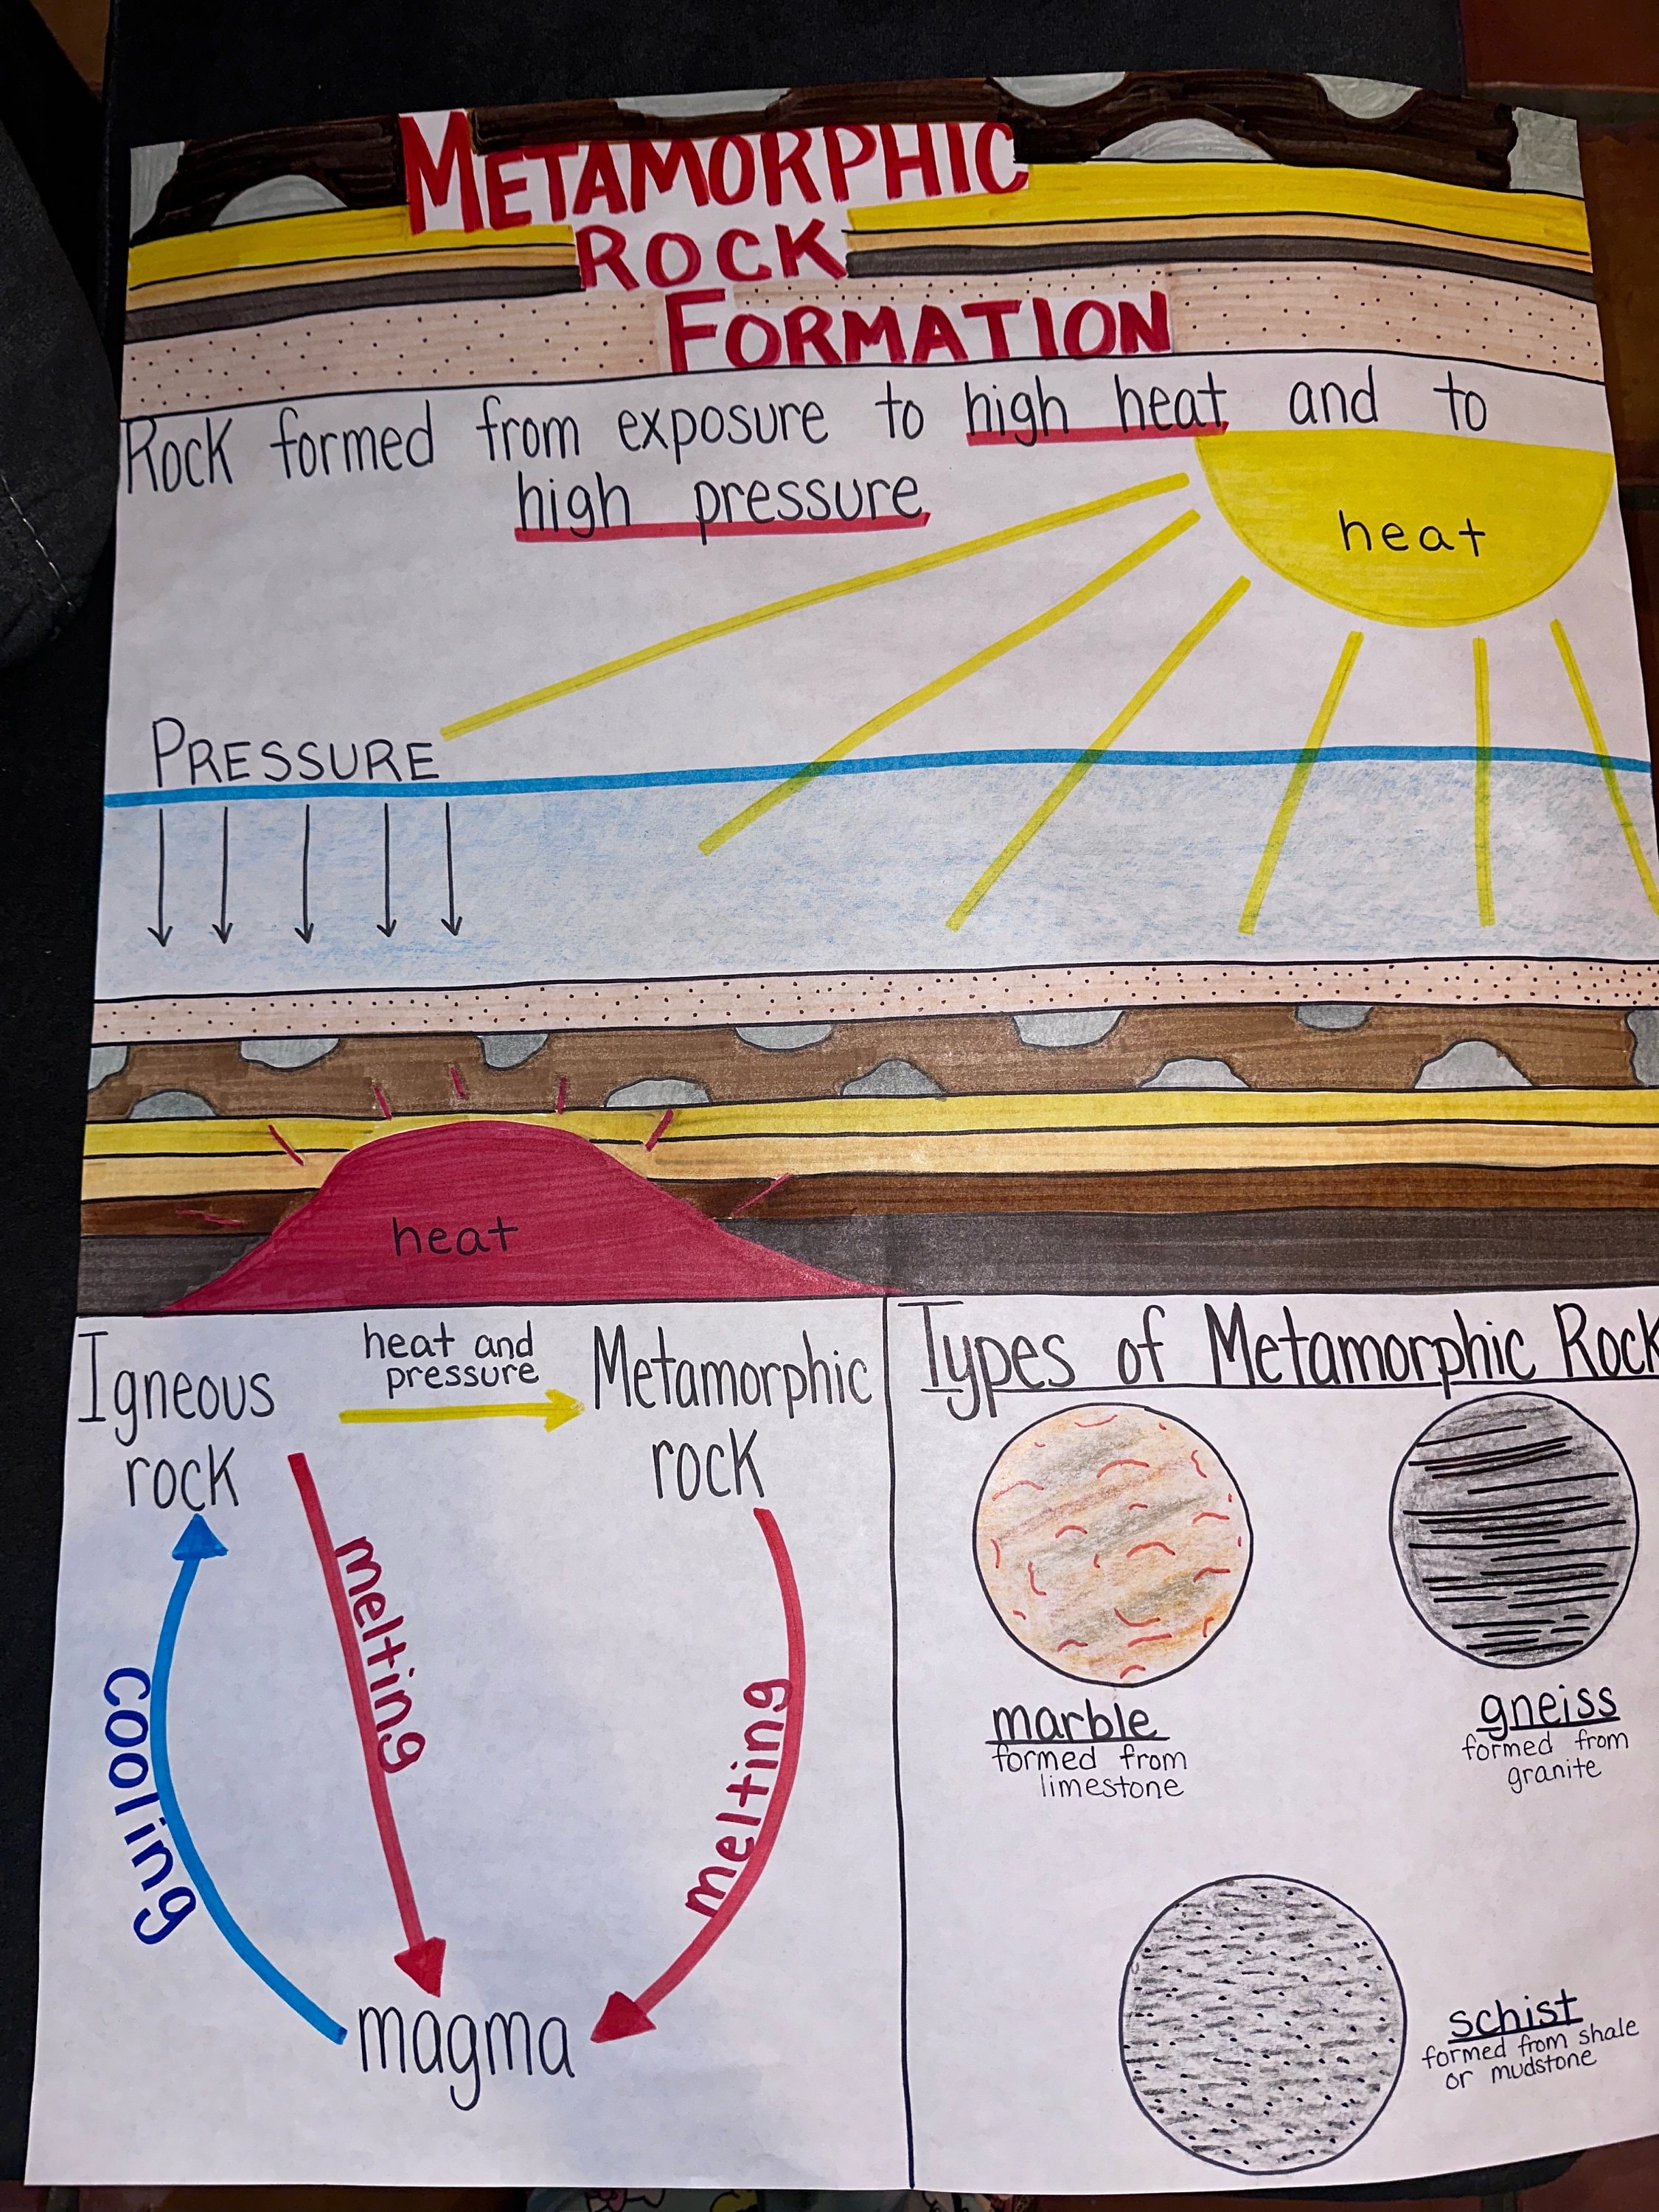 METAMORPHIC
ROCK
FORMATION
Rock formed from exposure to high heat and to
high pressure
heat
PRESSURE
heat
Igneous
rock
heat and
pressure
Metamorphic
rock
melting
melting
cooling
magma
Types of Metamorphic Rock
marble
formed from
limestone
gneiss
formed from
granite
schist
formed from shale
or mudstone